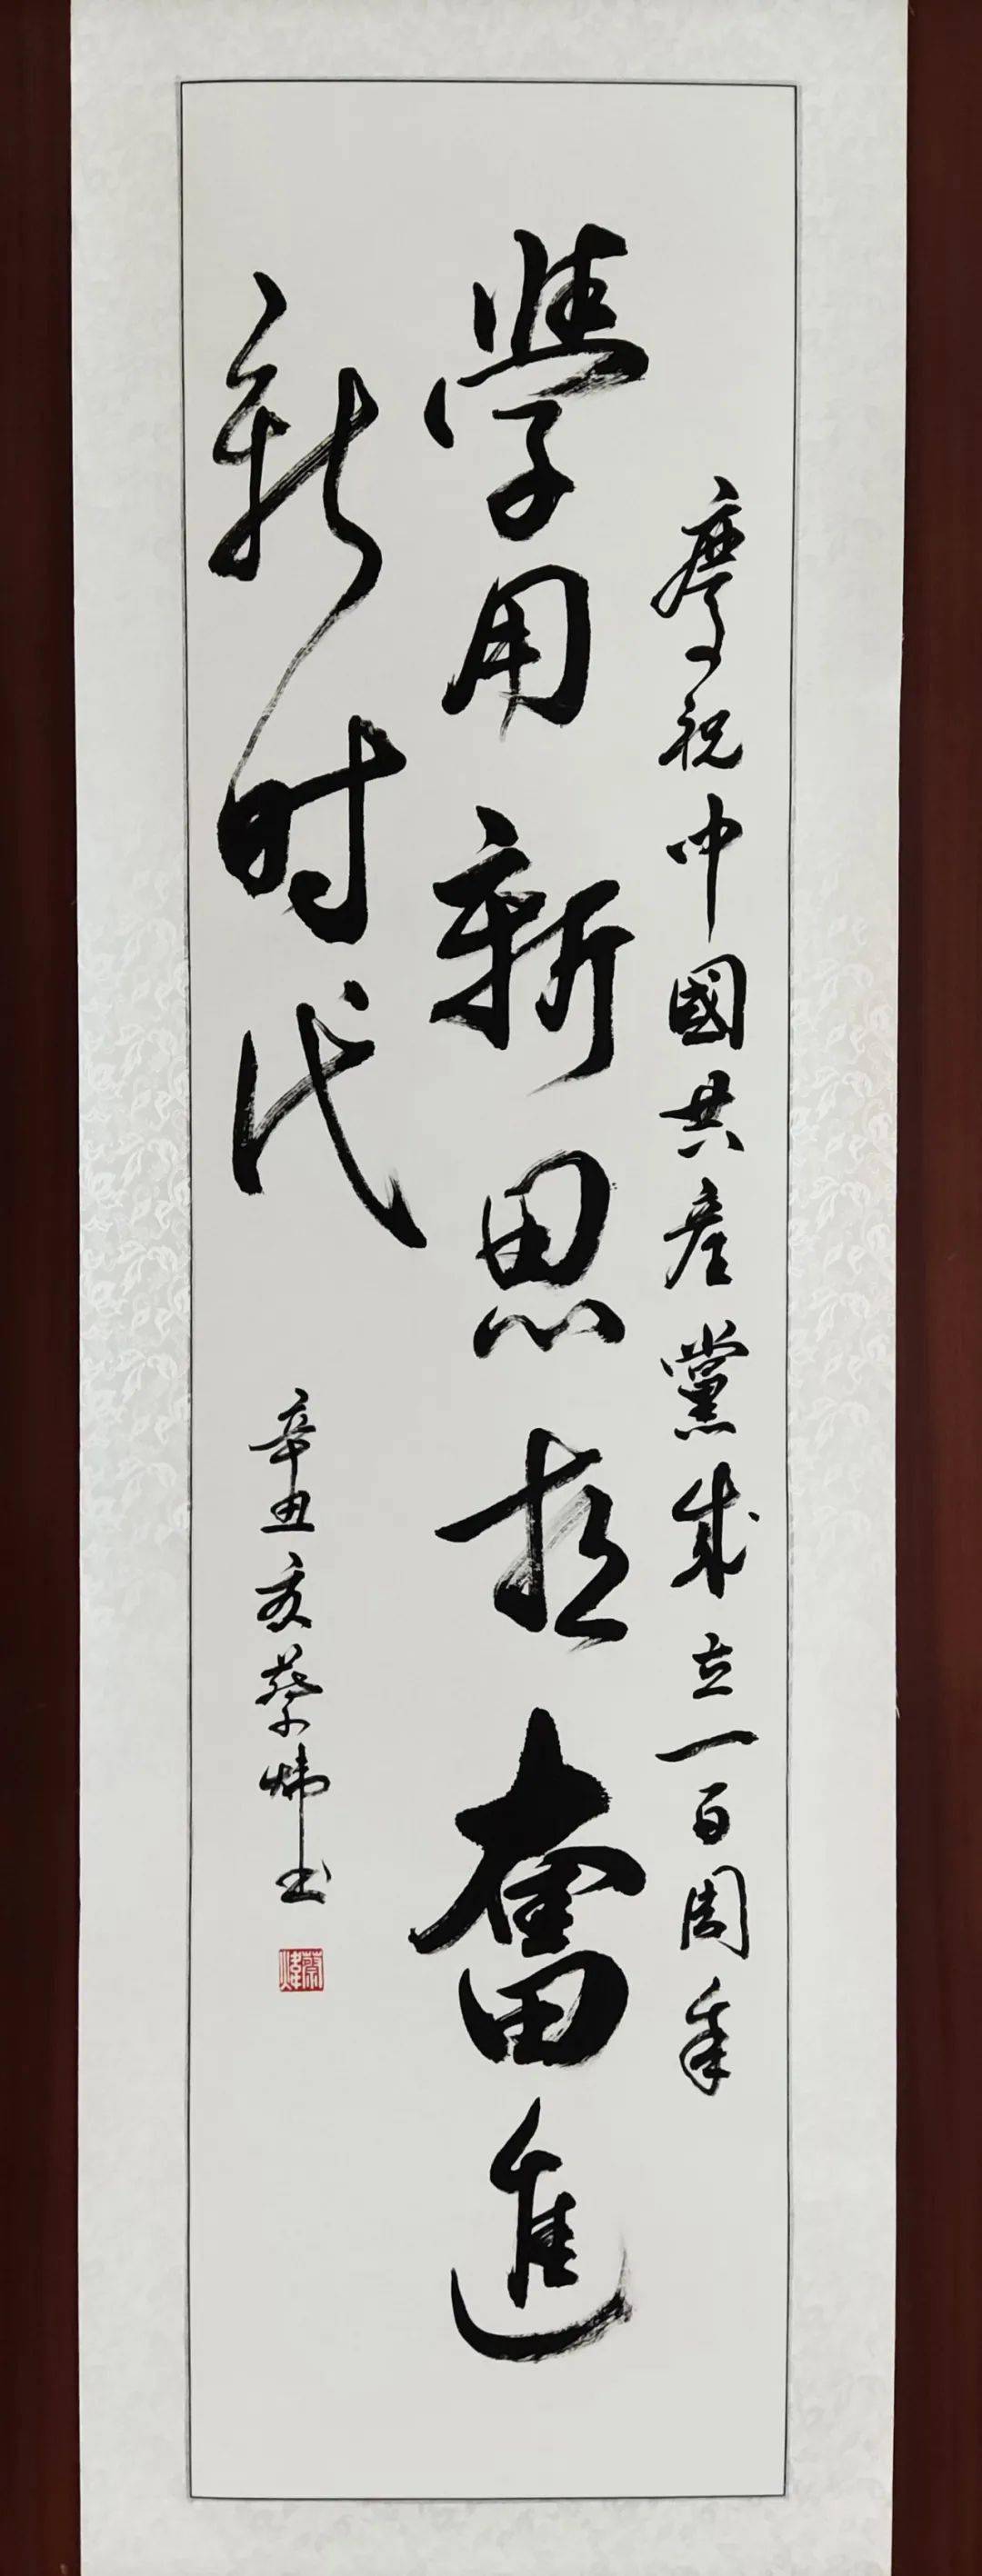 慶祝中國共產黨成立一百周年
學用新思想奮進
新时代
辛丑夏蔡炜书
蔡煒